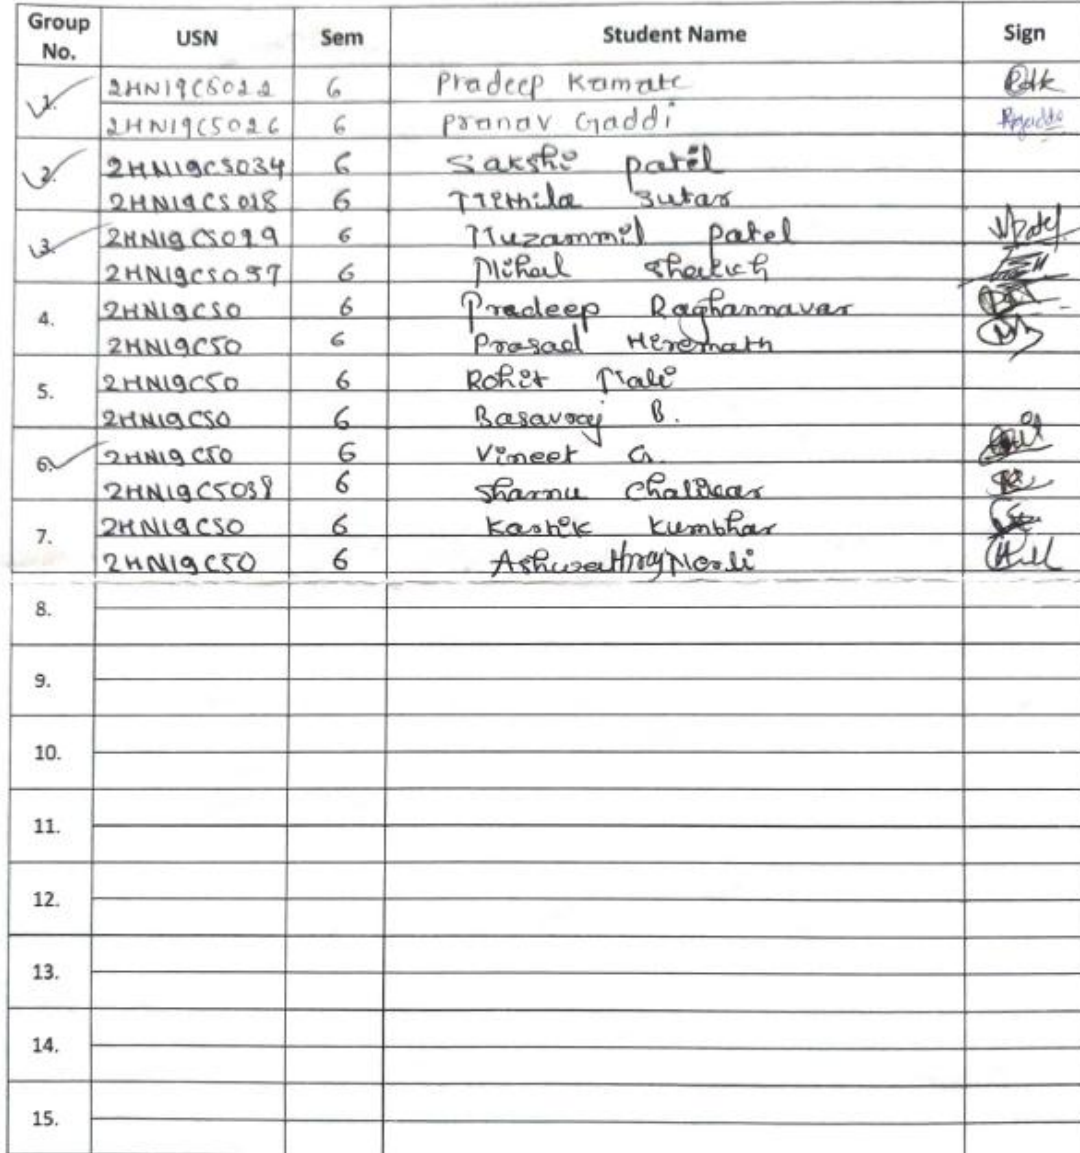 Group No. USN Sem Student Name Sign
1. 2HN19CS022 6 Pradeep Kamate
2HN19CS026 6 Pranav Gaddi
2. 2HN19CS034 6 Sakshi patil
2HN19CS018 6 Mithila Sutar
3. 2HN19CS019 6 Muzammil Patel
2HN19CS037 6 Nihal Shaikh
4. 2HN19CS0 6 Pradeep Raghannavar
2HN19CS0 6 Prasad Hiremath
5. 2HN19CS0 6 Rohit Mali
2HN19CS0 6 Basavraj B.
6. 2HN19CS0 6 Vineet G.
2HN19CS038 6 Sharnu Chalikar
7. 2HN19CS0 6 Kartik Kumbhar
2HN19CS0 6
8.
9.
10.
11.
12.
13.
14.
15.